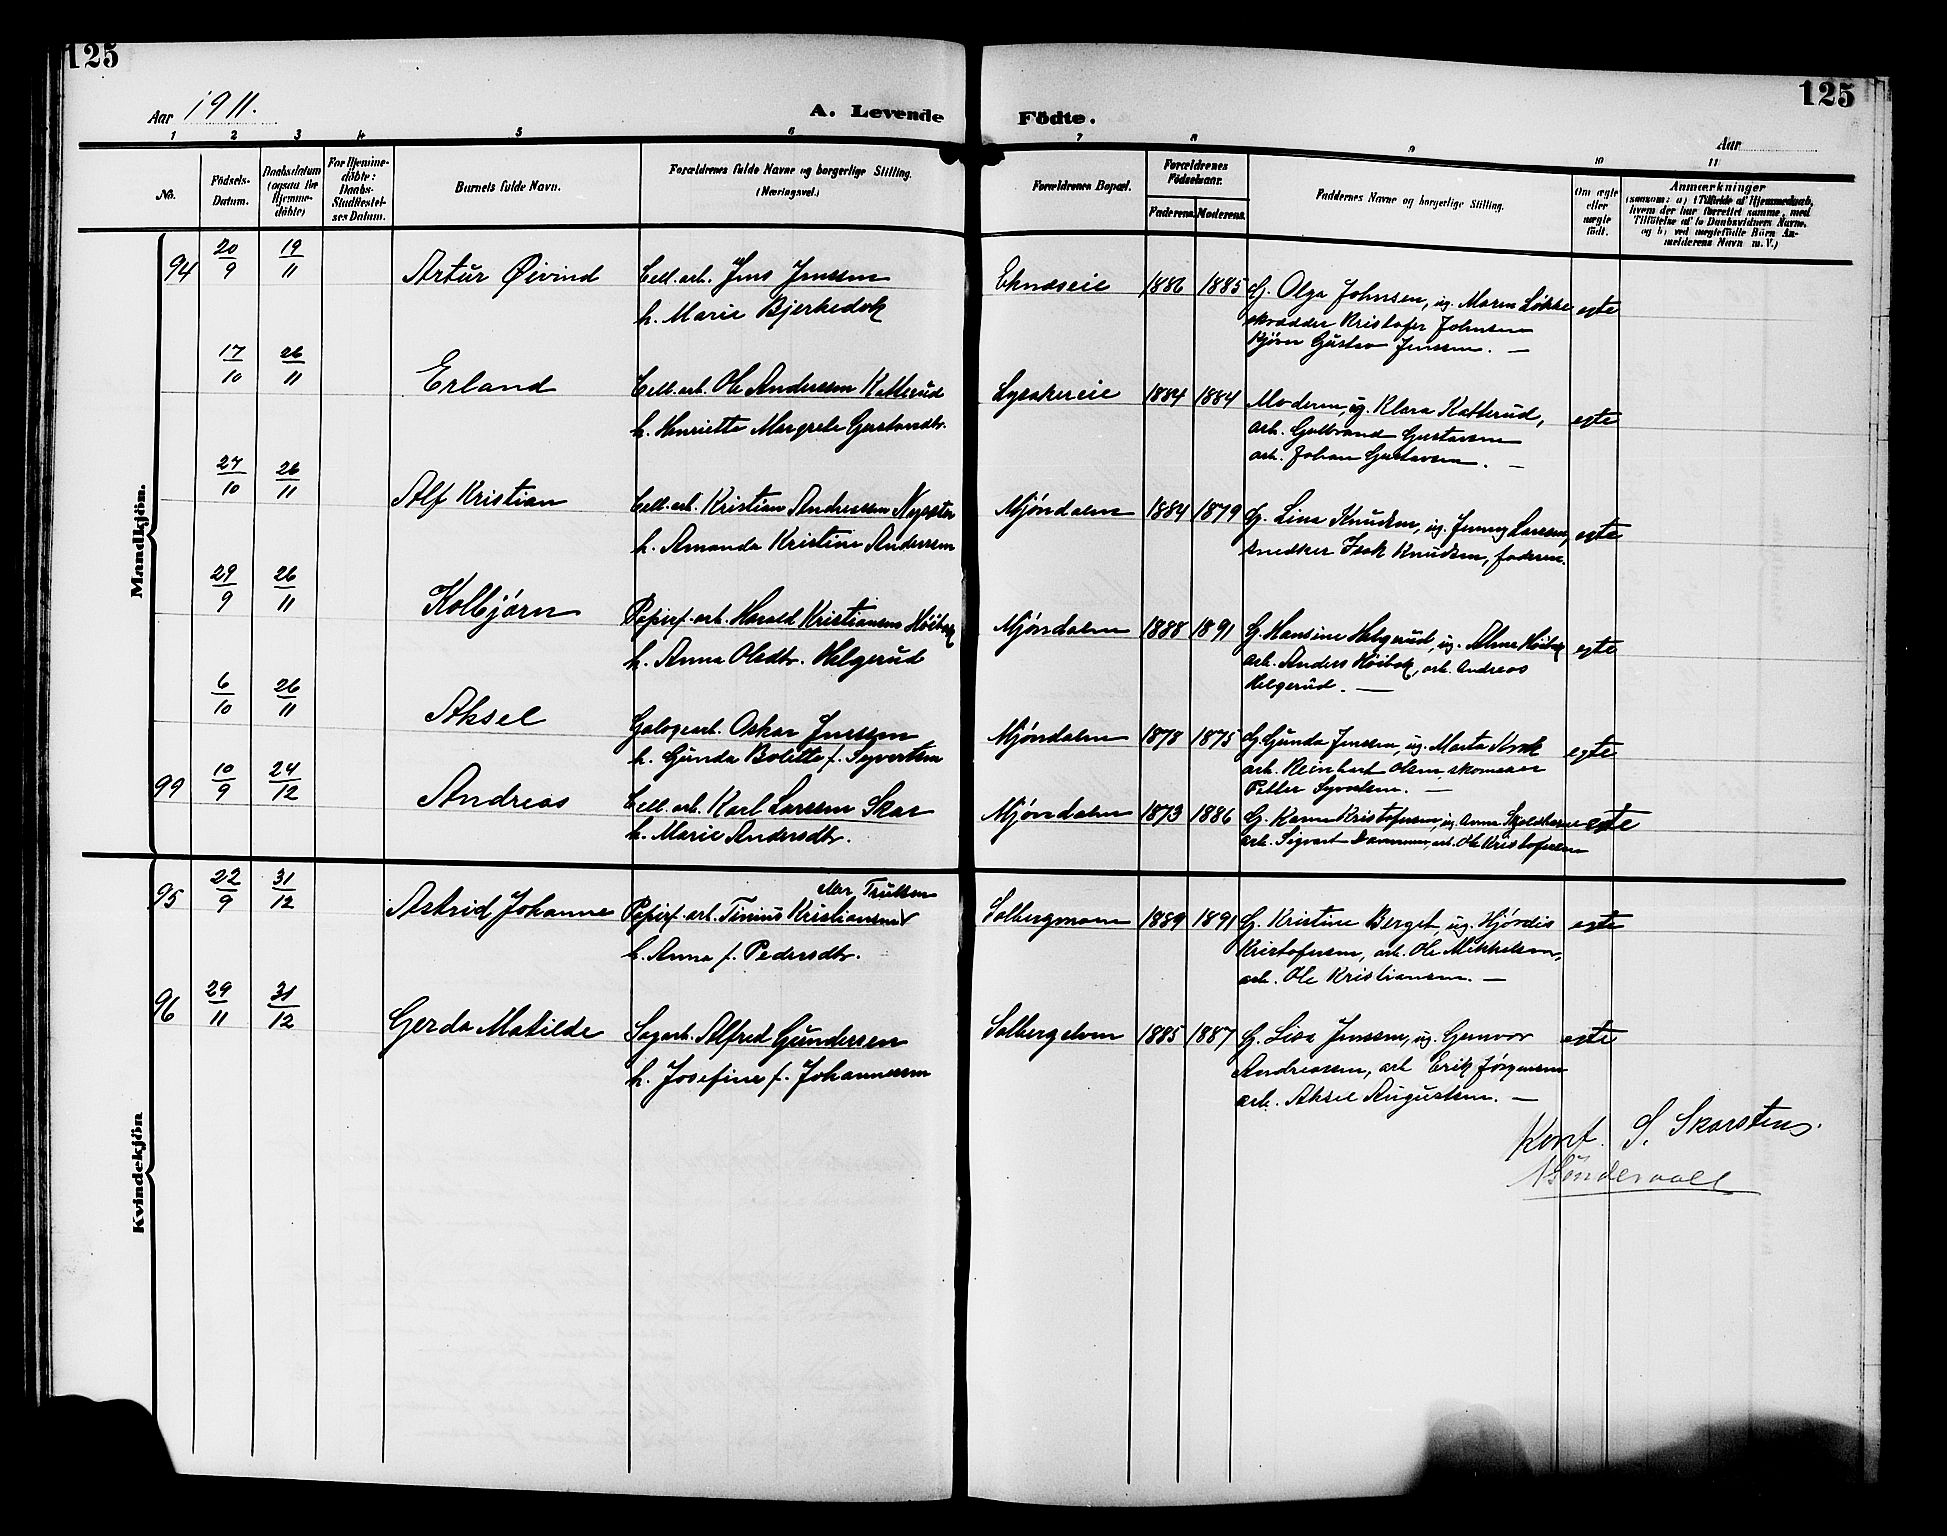 125
125
Aar 1911.
A. Levende Födte.
Aar
1 2 3 4 5 6 7 8 9 10 11
No.
Födsels-
Datum.
Daabsdatum
(ogsaa for
Hjemme-
döbte)
For Hjemme-
döbte:
Daabs-
Stadfæstel-
ses Datum.
Barnets fulde Navn.
Forældrenes fulde Navne og borgerlige Stilling.
(Næringsvei.)
Forældrenes Bopæl.
Forældrenes
Födselsaar.
Faderens. Moderens.
Faddernes Navne og borgerlige Stilling.
Om ægte
eller
uægte
födt.
Anmærkninger
(saasom: a) i Tilfælde af Hjemmedaab,
hvem der har forrettet samme, med
Tilföielse af to Daabsvidners Navne,
og b) ved uægtefödte Börn An-
melderens Navn m. V.)
Mandkjön.
94 20/9 19/11 Artur Øivind Cell. arb. Jens Jenssen
h. Marie Bjerkedok
1886 1885 G. Olga Johnsen, ug. Maren Løkke
skrædder Kristofer Johnsen
Bjørn Gustav Jenssen. —
egte
17/10 26/11 Erland Cell. arb. Ole Anderssen Katterud
h. Henriette Margrete Gustavsdtr.
Lysakereie 1884 1884 Moderen, ug. Klara Katterud,
arb. Gulbrand Gustavsen
arb. Johan Gustavsen. —
egte
27/10 26/11 Alf Kristian Cell. arb. Kristian Andreassen
h. Amanda Kristine Anderssen
Mjøndalen 1884 1879 G. Lina Knudsen, ug. Jenny Larssen,
snedker Isak Knudsen, faderen.
egte
29/9 26/11 Kolbjørn Papirf. arb. Harald Kristiansen Høibak
h. Anna Olsdtr. Helgerud
Mjøndalen 1888 1891 G. Hansine Helgerud, ug. Alma Høibak
arb. Anders Høibak, arb. Andreas
Helgerud. —
egte
6/10 26/11 Aksel Galogearb. Oskar Jenssen
h. Gunda Bolette f. Syvertsen
Mjøndalen 1878 1875 G. Gunda Jenssen, ug. Marta
arb. Reinhart Olsen, skomaker
Petter Syvertsen. —
egte
99 10/9 24/12 Andreas Cell. arb. Karl Larssen Skar
h. Marie Andersdtr.
Mjøndalen 1873 1886 G. Karen Kristofersen, ug. Anna
arb. Sigvart arb. Ole Kristofersen
egte
Kvindekjön
95 22/9 31/12 Astrid Johanne Papirf. arb. Tinius Kristiansen
Aar Trulsen
h. Anna f. Pedersdtr.
Solbergmoen 1889 1891 G. Kristine Berget, ug. Hjørdis
Kristofersen, arb. Ole Mikkelsen,
arb. Ole Kristiansen. —
egte
96 29/11 31/12 Gerda Matilde Sagarb. Alfred Gundersen
h. Josefine f. Johannessen
Solbergelven 1885 1887 G. Lisa Jenssen, ug. Gunvor
Andreassen, arb Erik Jørgensen
arb. Aksel Augustsen. —
egte
Konf. S. Skarstens.